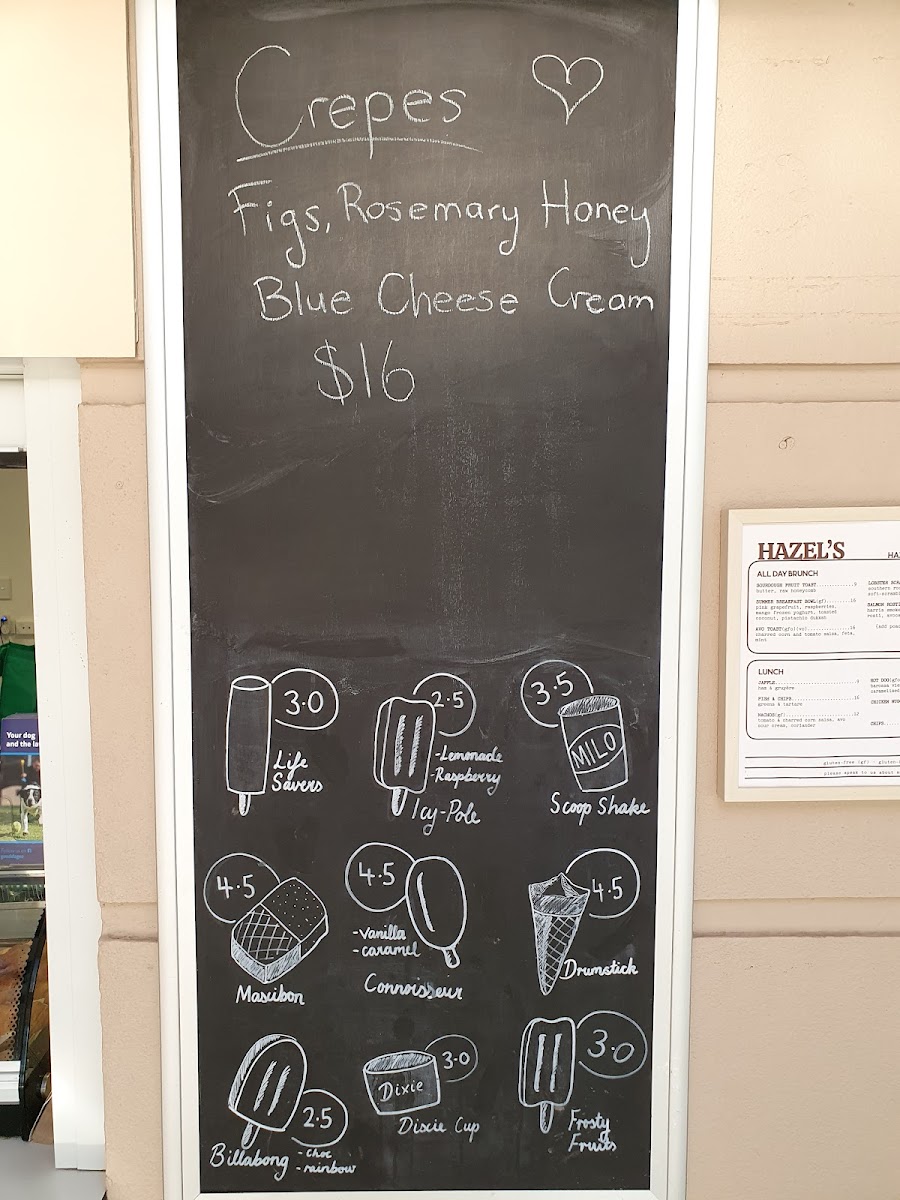 Crepes
Figs, Rosemary Honey
Blue Cheese Cream
$16
3.0
Life
Savers
2.5
-Lemonade
-Raspberry
Icy-Pole
3.5
MILO
Scoop Shake
4.5
Maxibon
4.5
-vanilla
-caramel
Connoisseur
4.5
Drumstick
2.5
Billabong
-choc
-rainbow
3.0
Dixie
Dixie Cup
3.0
Frosty
Fruits
HAZEL'S
ALL DAY BRUNCH
SOURDOUGH FRUIT TOAST 9
butter, raw honeycomb
SUMMER BREAKFAST BOWL(gf) 16
pink grapefruit, raspberries,
mango frozen yoghurt, toasted
coconut, pistachio dukkah
AVO TOAST(gfo)(vo) 16
charred corn and tomato salsa, feta,
mint
LUNCH
JAFFLE 9
ham & gruyère
FISH & CHIPS 16
greens & tartare
NACHOS(gf) 12
tomato & charred corn salsa, avo
sour cream, coriander
LOBSTER
SALMON
HOT DOG
CHICKEN
CHIPS
gluten-free (gf)
please speak to us about
Your dog
and the